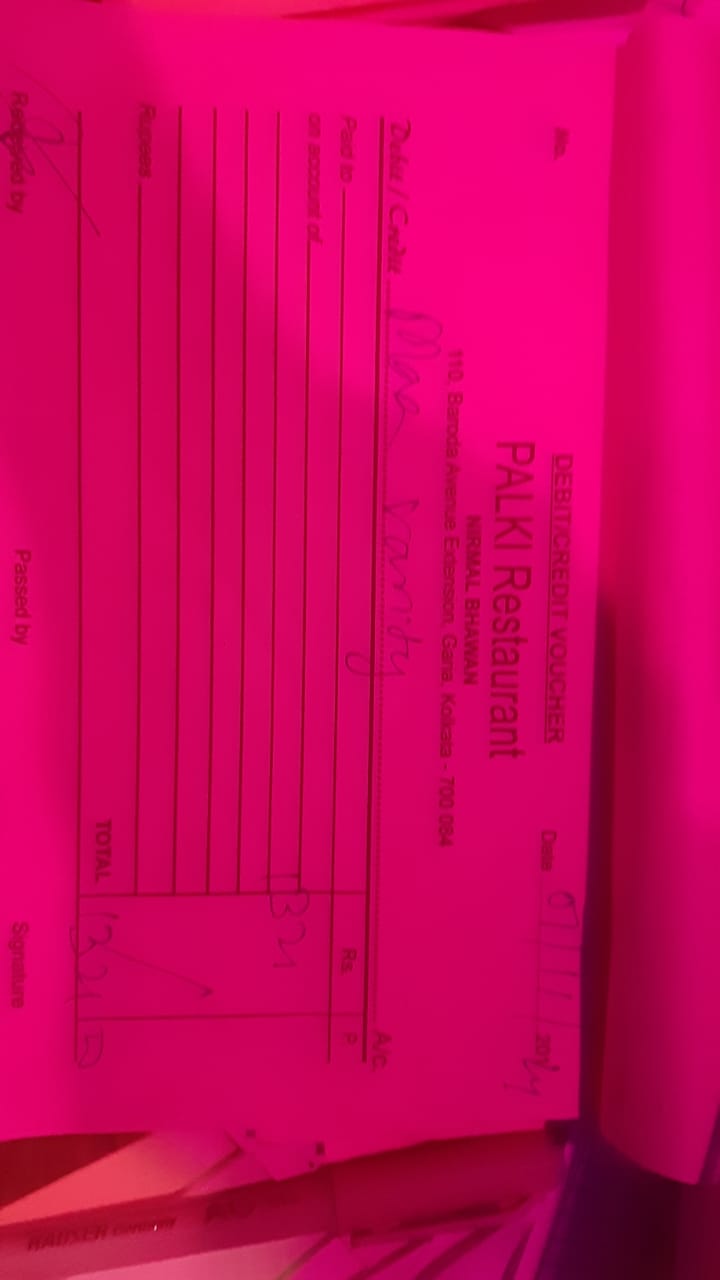 DEBIT/CREDIT VOUCHER
No.
Date 07/11 2024
PALKI Restaurant
NIRMAL BHAWAN
110, Baroda Avenue Extension, Garia, Kolkata - 700 084
Debit / Credit Maa Variety A/C.
Paid to Rs. P.
on account of
1321
Rupees
TOTAL 1321
Received by Passed by Signature
HAUSER